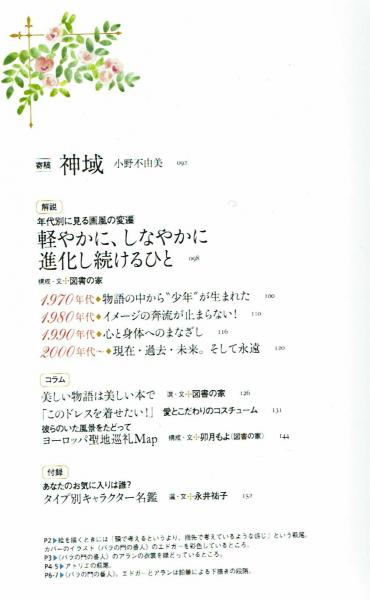 寄稿 神域 小野不由美 092
解説
年代別に見る画風の変遷
軽やかに、しなやかに
進化し続けるひと 098
構成・文✣図書の家
1970年代◆物語の中から“少年”が生まれた 100
1980年代◆イメージの奔流が止まらない! 110
1990年代◆心と身体へのまなざし 116
2000年代〜◆現在・過去・未来。そして永遠 120
コラム
美しい物語は美しい本で 選・文✣図書の家 126
「このドレスを着せたい!」 愛とこだわりのコスチューム 131
彼らのいた風景をたどって
ヨーロッパ聖地巡礼Map 構成・文✣卯月もよ(図書の家) 144
付録
あなたのお気に入りは誰?
タイプ別キャラクター名鑑 選・文✣永井祐子 152
P2▶絵を描くときには「頭で考えるというより、指先で考えているような感じ」という萩尾。
カバーのイラスト〈バラの門の番人〉のエドガーを彩色しているところ。
P3▶〈バラの門の番人〉のアランの衣裳を縁どっているところ。
P4-5▶アトリエの萩尾。
P6-7▶〈バラの門の番人〉。エドガーとアランは鉛筆による下描きの段階。